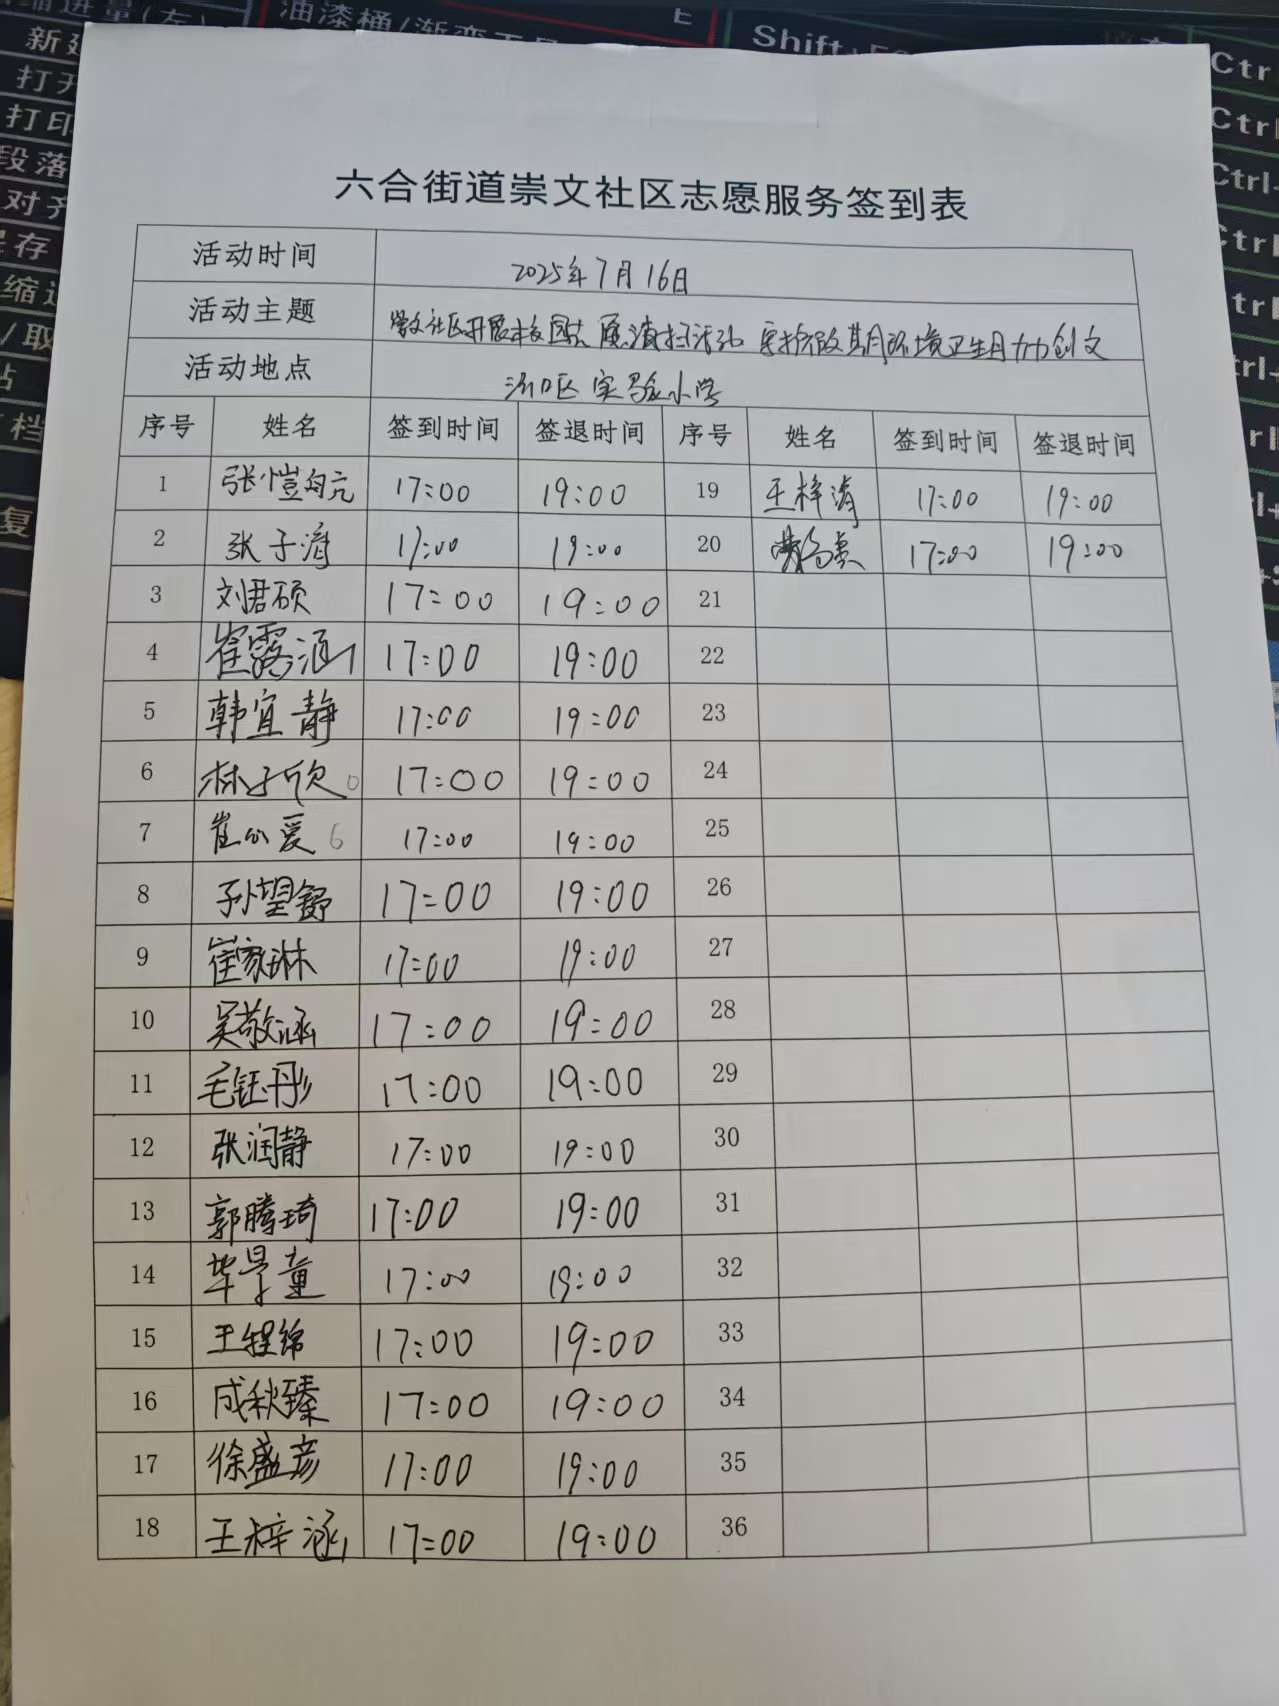 油漆桶/渐变工具
E
新建
打开
打印
段落
对齐
Ctrl
Ctrl
Ctrl
六合街道崇文社区志愿服务签到表
活动时间 2025年7月16日
活动主题 崇文社区开展校园志愿清扫活动 守护假期环境卫生月力创文
活动地点 区实验小学
序号 姓名 签到时间 签退时间 序号 姓名 签到时间 签退时间
1 张恺 17:00 19:00 19 王梓涛 17:00 19:00
2 张子涵 17:00 19:00 20 17:00 19:00
3 刘君硕 17:00 19:00 21
4 崔露涵 17:00 19:00 22
5 韩宜静 17:00 19:00 23
6 林子欣 17:00 19:00 24
7 崔心爱 6 17:00 19:00 25
8 孙望舒 17:00 19:00 26
9 崔家琳 17:00 19:00 27
10 吴敬涵 17:00 19:00 28
11 毛钰彤 17:00 19:00 29
12 张润静 17:00 19:00 30
13 郭腾琦 17:00 19:00 31
14 毕景童 17:00 19:00 32
15 王程锦 17:00 19:00 33
16 成秋臻 17:00 19:00 34
17 徐盛彦 17:00 19:00 35
18 王梓涵 17:00 19:00 36